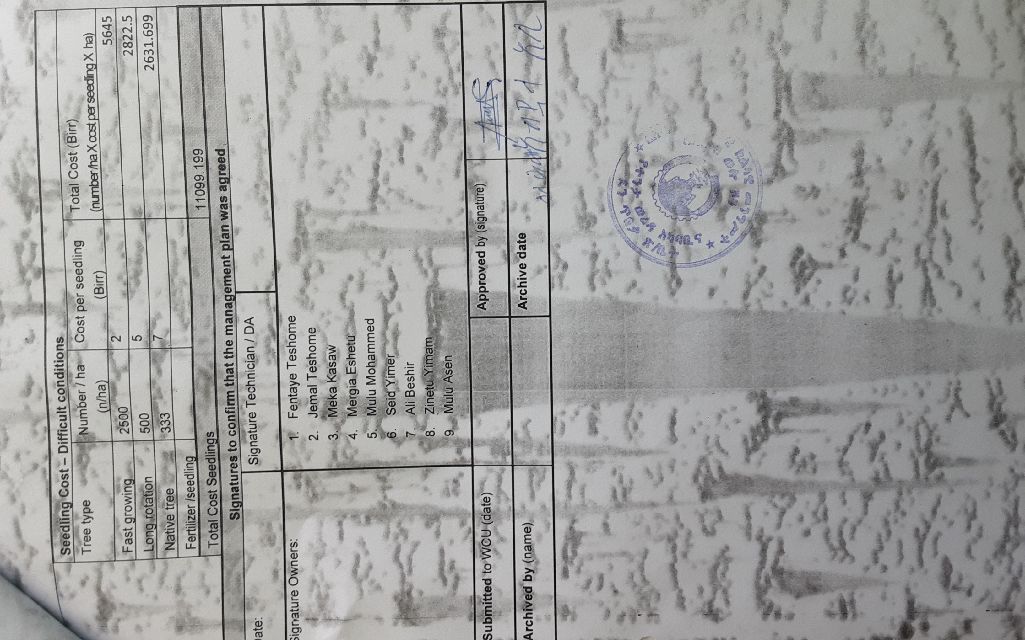 Seedling Cost – Difficult conditions
Tree type Number / ha Cost per seedling Total Cost (Birr)
(n/ha) (Birr) (number/ha X cost per seeding X ha)
Fast growing 2500 2 5645
Long rotation 500 5 2822.5
Native tree 333 7 2631.699
Fertilizer /seedling
Total Cost Seedlings 11099.199
Signatures to confirm that the management plan was agreed
Date: Signature Technician / DA
Signature Owners:
1. Fentaye Teshome
2. Jemal Teshome
3. Meka Kasaw
4. Mergia Eshetu
5. Mulu Mohammed
6. Seid Yimer
7 Ali Beshir
8. Zinetu Yimam
9. Mulu Asen
Submitted to WCU (date) Approved by (signature)
Archived by (name) Archive date